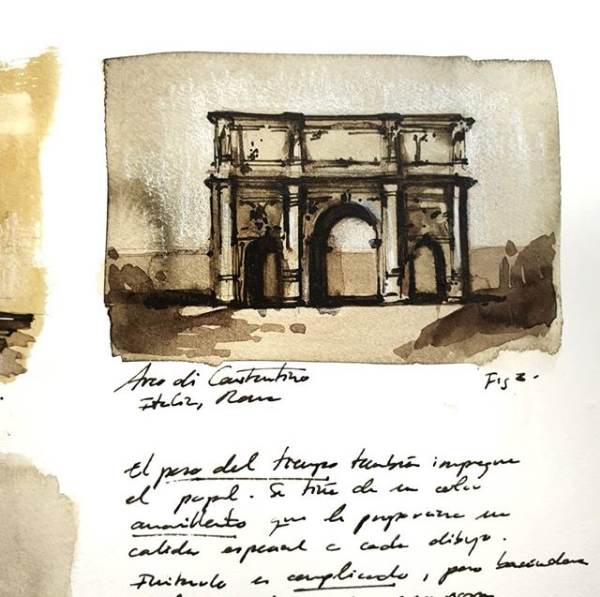 Arco di Constantino
Italia, Roma
Fig 2.
El peso del tiempo también impregna
el papel. Se tiñe de un color
amarillento que le proporciona una
calidez especial a cada dibujo.
Imitarlo es complicado, pero basándome